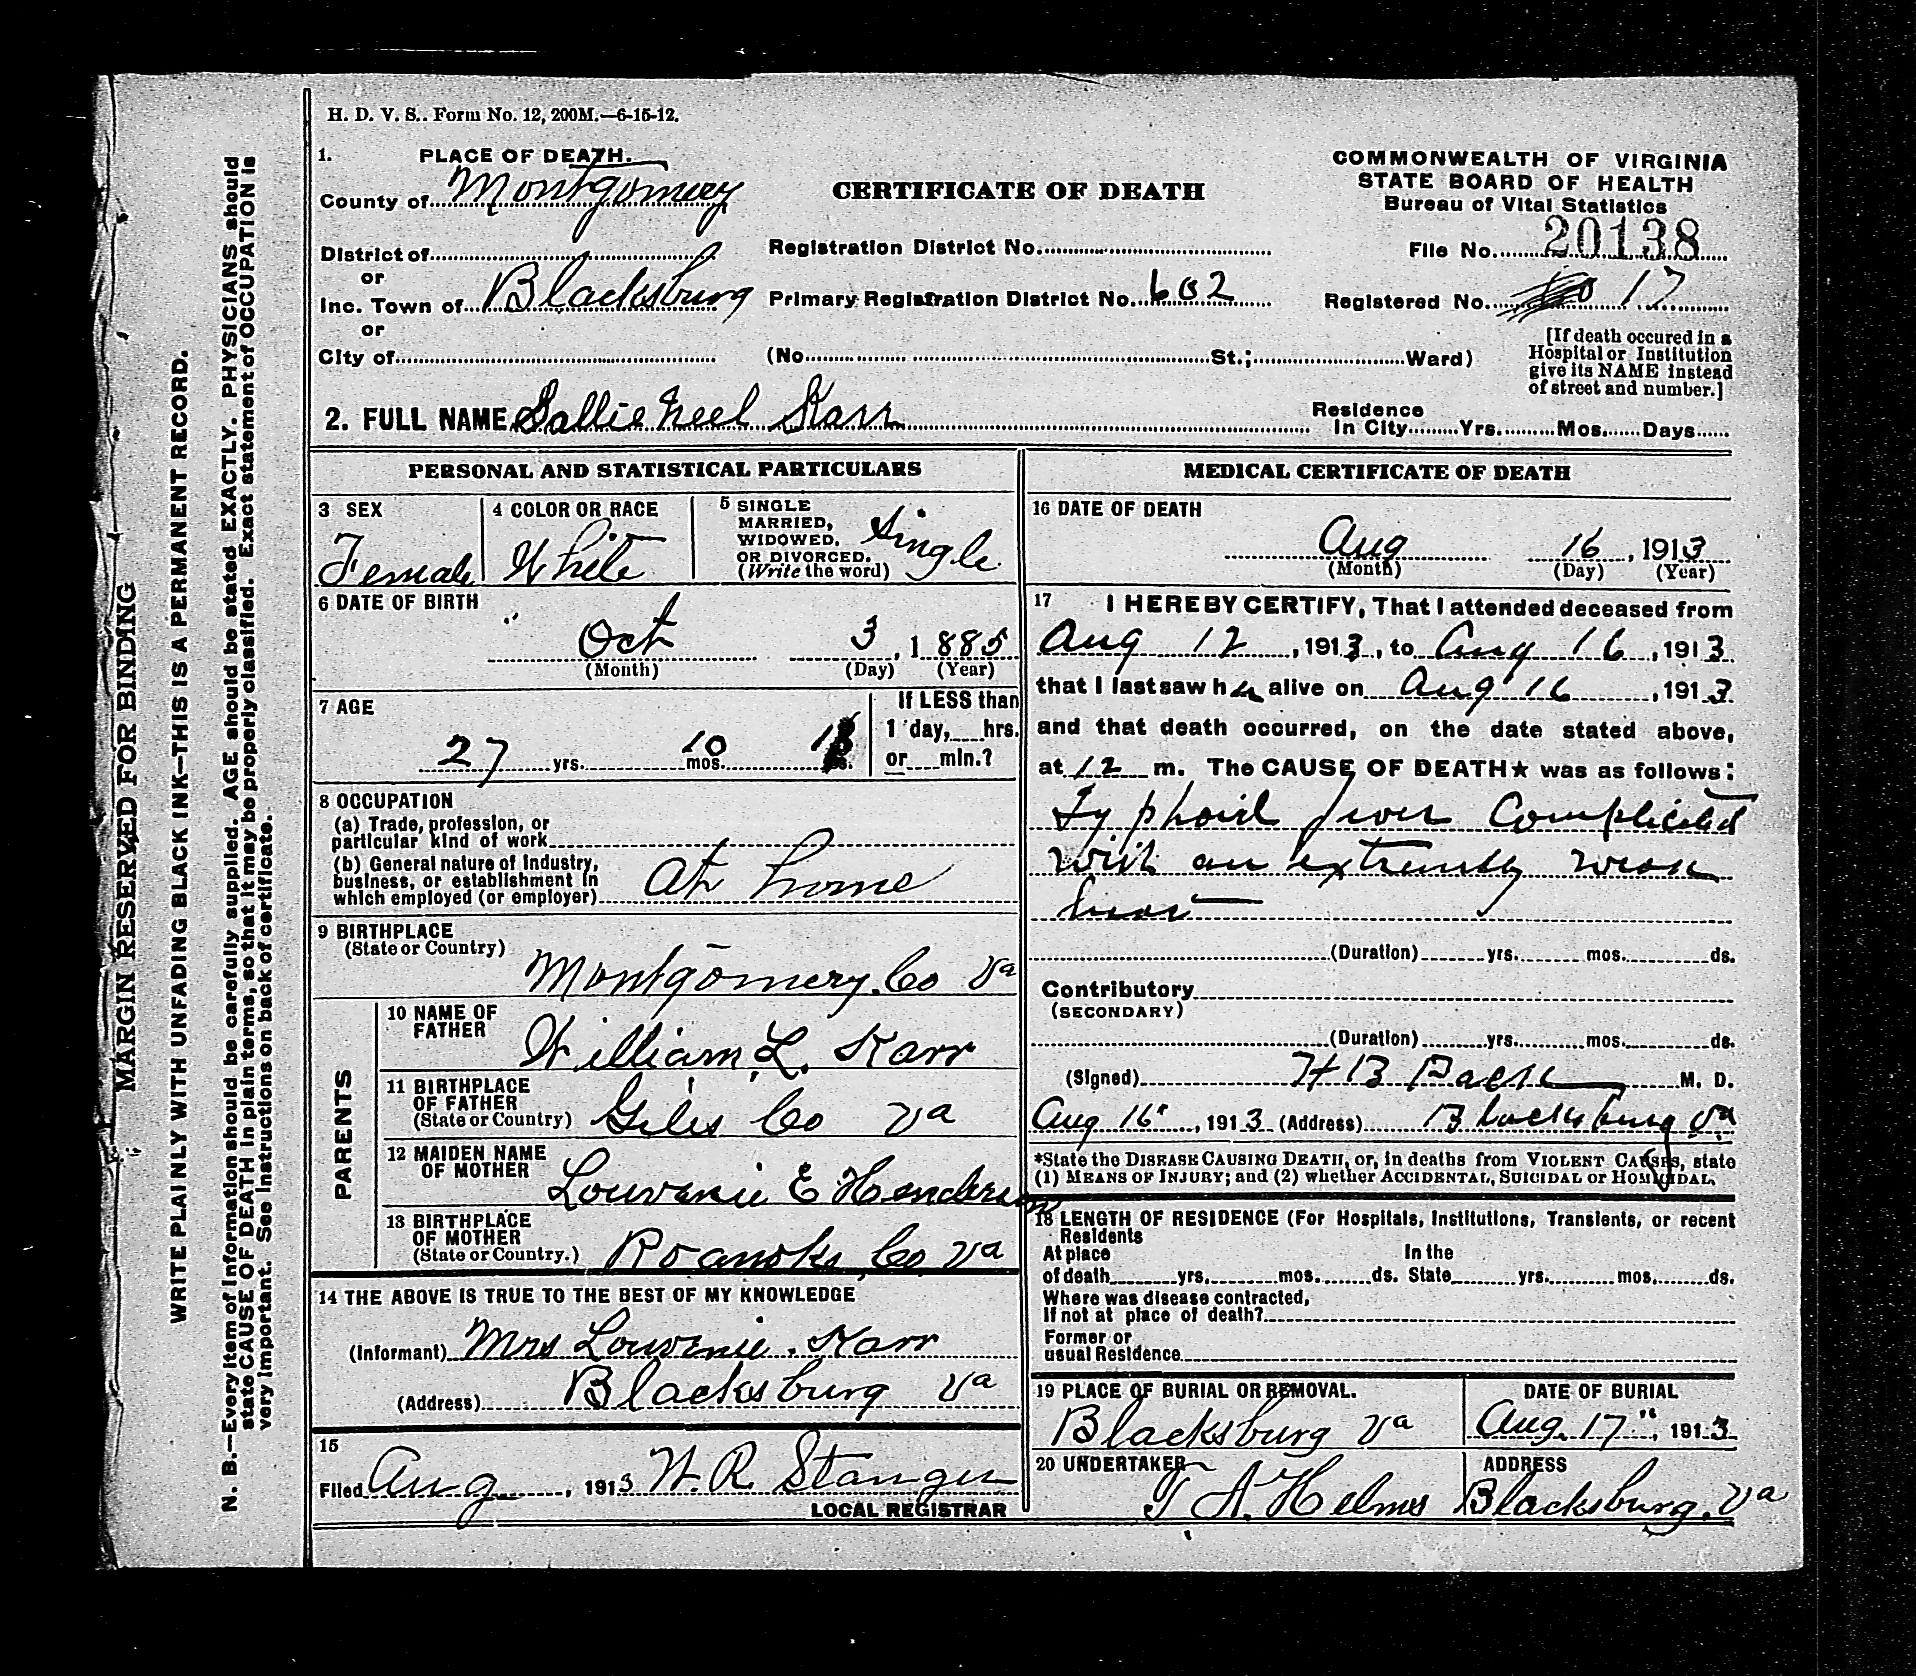 H. D. V. S.. Form No. 12, 200M.—6-15-12.
1. PLACE OF DEATH.
County of Montgomery
District of
or
Inc. Town of Blacksburg
or
City of
CERTIFICATE OF DEATH
Registration District No.
Primary Registration District No. 602
(No. St.; Ward)
COMMONWEALTH OF VIRGINIA
STATE BOARD OF HEALTH
Bureau of Vital Statistics
File No. 20138
Registered No. 17
[If death occured in a
Hospital or Institution
give its NAME instead
of street and number.]
2. FULL NAME Sallie Neel Karr
Residence
In City Yrs. Mos. Days
PERSONAL AND STATISTICAL PARTICULARS
3 SEX
Female
4 COLOR OR RACE
White
5 SINGLE
MARRIED,
WIDOWED,
OR DIVORCED.
(Write the word)
Single
6 DATE OF BIRTH
Oct 3, 1885
(Month) (Day) (Year)
7 AGE
27 yrs. 10 mos.
If LESS than
1 day, hrs.
or min.?
8 OCCUPATION
(a) Trade, profession, or
particular kind of work
(b) General nature of Industry,
business, or establishment in
which employed (or employer) At home
9 BIRTHPLACE
(State or Country)
Montgomery. Co Va
PARENTS
10 NAME OF
FATHER
William L. Karr
11 BIRTHPLACE
OF FATHER
(State or Country) Giles Co Va
12 MAIDEN NAME
OF MOTHER
Louvenie E Henderson
13 BIRTHPLACE
OF MOTHER
(State or Country.) Roanoke Co. Va
14 THE ABOVE IS TRUE TO THE BEST OF MY KNOWLEDGE
(Informant) Mrs Louvenie. Karr
(Address) Blacksburg Va
15
Filed Aug, 1913 W. R. Stanger
LOCAL REGISTRAR
MEDICAL CERTIFICATE OF DEATH
16 DATE OF DEATH
Aug 16, 1913
(Month) (Day) (Year)
17 I HEREBY CERTIFY, That I attended deceased from
Aug 12, 1913, to Aug 16, 1913
that I last saw her alive on Aug 16, 1913
and that death occurred, on the date stated above,
at 12 m. The CAUSE OF DEATH★ was as follows:
Typhoid fever Complicated
with an extremely weak
heart
(Duration) yrs. mos. ds.
Contributory
(SECONDARY)
(Duration) yrs. mos. ds.
(Signed) H B M. D.
Aug 16", 1913 (Address) Blacksburg Va
*State the DISEASE CAUSING DEATH, or, in deaths from VIOLENT CAUSES, state
(1) MEANS OF INJURY; and (2) whether ACCIDENTAL, SUICIDAL or HOMICIDAL.
18 LENGTH OF RESIDENCE (For Hospitals, Institutions, Transients, or recent
Residents
At place In the
of death yrs. mos. ds. State yrs. mos. ds.
Where was disease contracted,
If not at place of death?
Former or
usual Residence
19 PLACE OF BURIAL OR REMOVAL.
Blacksburg Va
DATE OF BURIAL
Aug. 17", 1913
20 UNDERTAKER
T A. Helms
ADDRESS
Blacksburg. Va
MARGIN RESERVED FOR BINDING
WRITE PLAINLY WITH UNFADING BLACK INK—THIS IS A PERMANENT RECORD.
N. B.—Every item of information should be carefully supplied. AGE should be stated EXACTLY. PHYSICIANS should
state CAUSE OF DEATH in plain terms, so that it may be properly classified. Exact statement of OCCUPATION is
very important. See instructions on back of certificate.